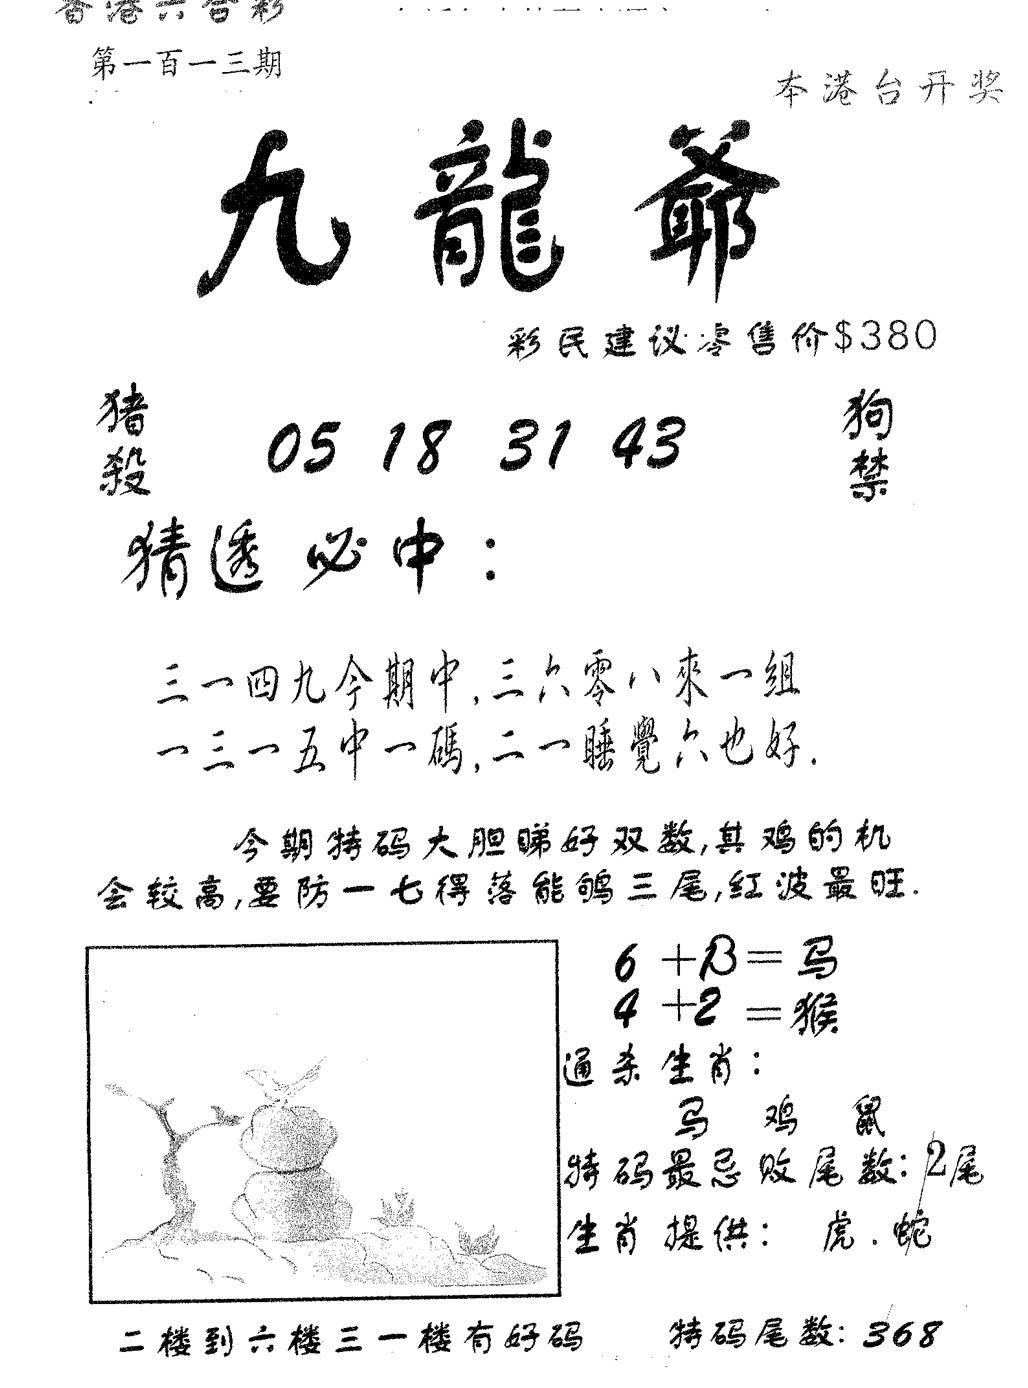 香港六合彩
第一百一三期
本港台开奖
九龍爺
彩民建议零售价$380
猪殺
05 18 31 43
狗禁
猜透必中：
三一四九今期中,三六零八來一組
一三一五中一碼,二一睡覺六也好.
今期特码大胆睇好双数,其鸡的机
会较高,要防一七得落能鸲三尾,红波最旺.
6+13=马
4+2=猴
通杀生肖：
马 鸡 鼠
特码最忌败尾数：2尾
生肖提供： 虎.蛇
二楼到六楼三一楼有好码 特码尾数：368